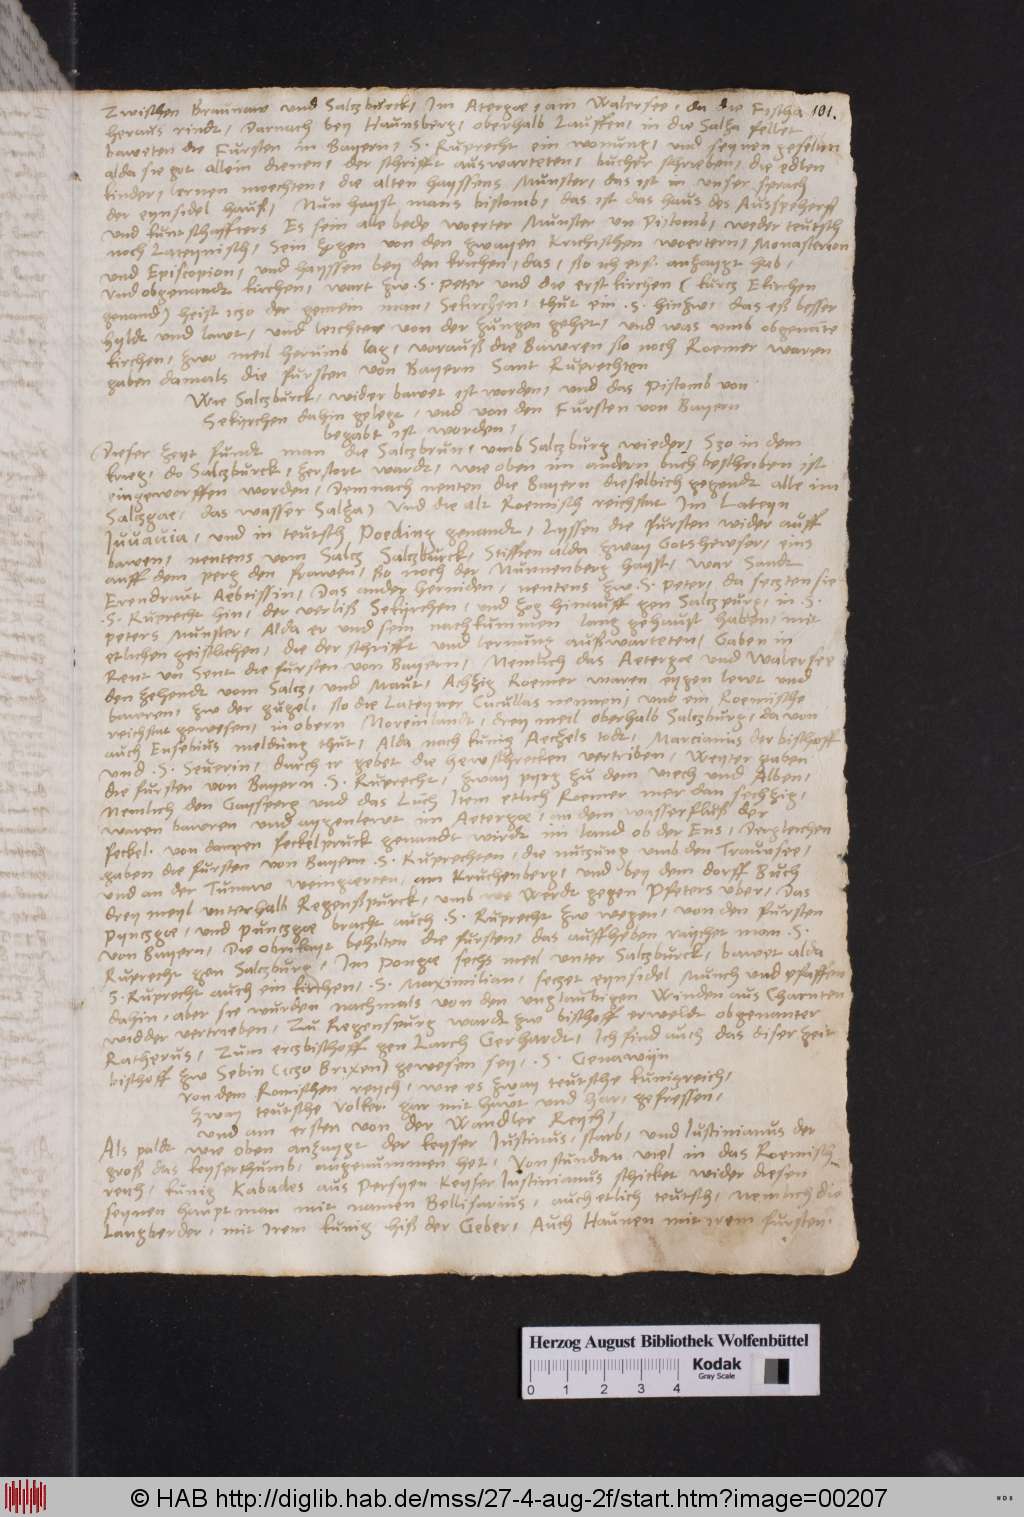 Zwischen Braunaw und Salczburck, Im Atergæ, am Walersee, da die Fischa 101.
heraus rindt, Darnach bey Haunsberg, oberhalb Lauffen, in die Salza fellet
baweten die Fursten in Bayern, S. Ruprecht ein wonung, und seynen gesellen
alda sie got allein dienen, der schrifft auswarteten, bucher schrieben, die edlen
kinder, lernen moechten, die alten hayssens Munster, das ist in unser sprach
der eynsidel hauß, Nun hayst mans bistomb, das ist das haus des Ausspehers
und kuntschaffters Es sein alle bede woerter Munster un Pistomb, weder teutsch
noch Lateynisch, Sein von den zwayen krichischen woertern, Monasterion
und Episcopion, und hayssen bey den krichen, das, so ich erst anzaygt hab,
und obgenandt kirchen, wart zw S. peter und die erst kirchen (kurcz Ekirchen
genand) heist iczo der gemein man, Sekirchen, thut ein .S. hinzw, das eß besser
hyldt und lawt, und leichter von der zungen gehet, und was umb obgenante
kirchen, zwo meil herumb lag, vorauß die Bawren so noch Roemer waren
gaben damals die fursten von Bayern Sant Ruprechten
Wie Salczburck, wider bawet ist worden, und das Pistomb von
Sekirchen dahin gelegt, und von den Fursten von Bayern
begabt ist worden,
Dieser zeyt fundt man die Salczbrun, umb Salczburg wieder, Szo in dem
krieg, do Salczburck, zerstort wardt, wie oben im andern buch beschriben ist
eingeworffen worden, Demnach nenten die Bayern dieselbich gegendt alle im
Salczgæ, das wasser Salza) Und die alt Roemisch reichstat Im Lateyn
Juvavia, und in teutsch Poeding genandt, Lyssen die fursten wider auff
bawen, nentens vom Salcz Salczburck, Stifften alda zway Gotshewser, eins
auff dem perg den frawen, so noch der Nunnenberg hayst, war Sandt
Erendraut Aebtissin, Das ander herniden, nentens zw .S. peter, da seczten sie
.S. Ruprecht hin, der verliß Sekirchen, und zog hinauff gen Salczpurg, in .S.
peters Munster, Alda er und sein nachkummen lang gehaust haben, mit
etlichen geistlichen, die der schrifft und lernung außwarteten, Gaben in
Rent un Sent die fursten von Bayern, Nemlich das Aetergæ und Walersee
den zehendt vom Salcz, und Maut, Achzig Roemer waren eygen lewt und
bawren, zw der gugel, so die Lateyner Cucullas nennen, und ein Roemische
reichstat gewesen, in obern Noreinlandt, drey meil oberhalb Salczburg, da von
auch Eusebius meldung thut, Alda nach kunig Aechels todt, Marcianus der bischoff
und .S. Seuerin, durch ir gebet die hewschrecken vertriben, Weyter gaben
die fursten von Bayern .S. Ruprecht, zway pyrg zu dem viech und Alben,
Nemlich den Gaysperg und das Luch Item etlich Roemer mer dan sechzig,
waren bawren und aygenlewt im Aetergæ, an dem wasserfluß der
feckel. von dannen feckelpruck genandt wirdt im land ob der Ens, Dergleichen
gaben die fursten von Bayern .S. Ruprechten, die nuczung umb den Traunsee,
und an der Tunaw weingærten, am kruchenberg, und bey dem dorff Buch
drey meyl unterhalb Regenßpurck, umb Werdt gegen Pfeters uber, Das
Pynczgæ, und Punczgæ bracht auch .S. Ruprecht zw wegen, von den fursten
von Bayern, Die obrikayt behilten die fursten, das auffheben raychet man .S.
Ruprecht gen Salczburg, Im Pongæ sechs meil unter Salczburck, bawet alda
S. Ruprecht auch ein kirchen, .S. Maximilian, seczet eynsidel Munch und pfaffen
dahin, aber sie wurden nachmals von den unglaubigen Winden aus Charnten
widder vertrieben, Zu Regenspurg wardt zw bischoff erweldt obgenanter
Ratherus, Zum erczbischoff gen Larch Gerhardt, Ich find auch das diser zeit
bischoff zw Sebin (iczo Brixen) gewesen sey, .S. Genawyn
Von dem Romischen reych, wie es zway teutsche kunigreich,
zway teutsche volker gar mit haut und har, gefressen,
und am ersten von der Wandler Reych,
Als paldt wie oben anzaygt der keyser Justinus, starb, und Justinianus der
groß das keyserthumb, angenummen het, Von stundan viel in das Roemisch
reych, kunig Kabades aus Persyen Keyser Justinianus schicket wider diesen
seynen hauptman mit namen Bellisarius, auch etlich teutsch, nemlich die
Langberder, mit irem kunig hiß der Geber, Auch Haunen mit irem fursten.
Herzog August Bibliothek Wolfenbüttel
Kodak
Gray Scale
0 1 2 3 4
© HAB http://diglib.hab.de/mss/27-4-aug-2f/start.htm?image=00207